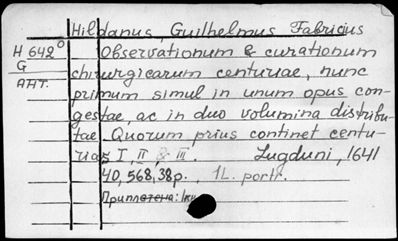 Hildanus, Guilhelmus Fabricius
H 642° Observationum & curationum
G chirurgicarum centuriae, nunc
АНТ. primum simul in unum opus con-
gestae, ac in duo volumina distribu-
tae. Quorum prius continet centu-
rias I, II & III. Lugduni, 1641
40, 568, 38 p., 1 L. portr.
Приплетена: 1 кн.